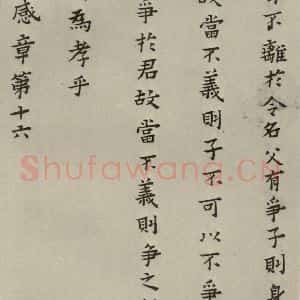 不離於令名父有爭子則身
故當不義則子不可以不爭
爭於君故當不義則爭之
為孝乎
感章第十六
Shufawang.Cn